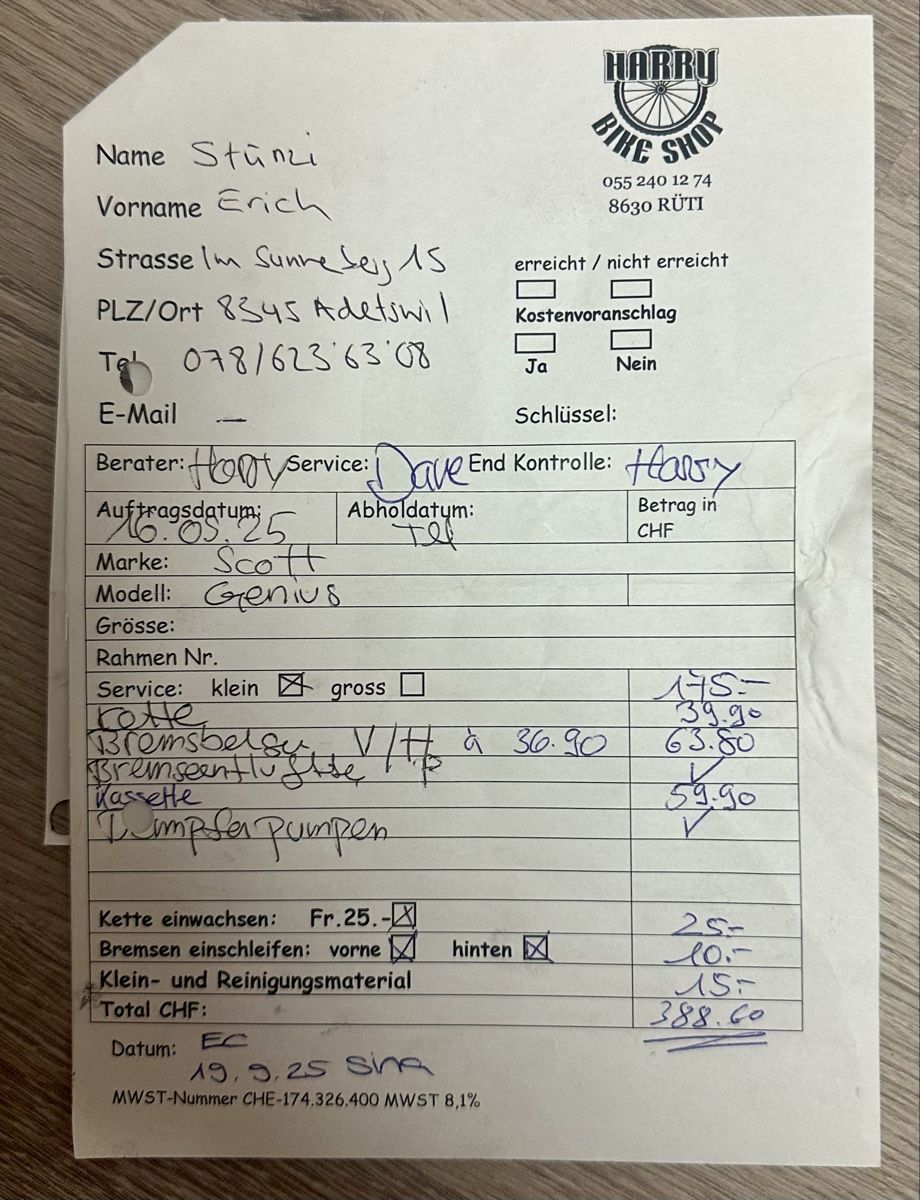 HARRY
BIKE SHOP
055 240 12 74
8630 RÜTI
Name Stünzi
Vorname Erich
Strasse Im Sunneberg 15
PLZ/Ort 8345 Adetswil
Tel 078/623'63'08
E-Mail —
erreicht / nicht erreicht
Kostenvoranschlag
Ja Nein
Schlüssel:
Berater: Harry Service: Dave End Kontrolle: Harry
Auftragsdatum: 16.09.25 Abholdatum: Tel Betrag in CHF
Marke: Scott
Modell: Genius
Grösse:
Rahmen Nr.
Service: klein ☒ gross ☐ 175.-
Kette 39.90
Bremsbeläge V/H à 36.90 63.80
✓
Kassette 59.90
Dämpfer pumpen ✓
Kette einwachsen: Fr.25.- ☒ 25.-
Bremsen einschleifen: vorne ☒ hinten ☒ 10.-
Klein- und Reinigungsmaterial 15.-
Total CHF: 388.60
Datum: EC
19.9.25 Sina
MWST-Nummer CHE-174.326.400 MWST 8,1%